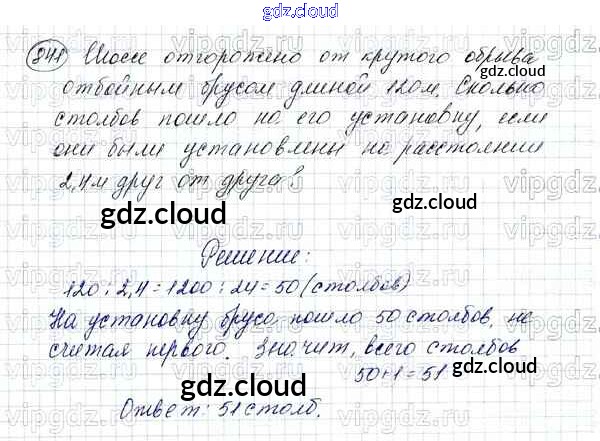 gdz.cloud
841 Шоссе отгорожено от крутого обрыва
отбойным брусом длиной 120м. Сколько
столбов пошло на его установку, если
они были установлены на расстоянии
2,4м друг от друга?
gdz.cloud
gdz.cloud
Решение:
120 : 2,4 = 1200 : 24 = 50 (столбов)
gdz.cloud
На установку бруса пошло 50 столбов, не
считая первого. Значит, всего столбов
50+1=51
gdz.cloud
gdz.cloud
Ответ: 51 столб.